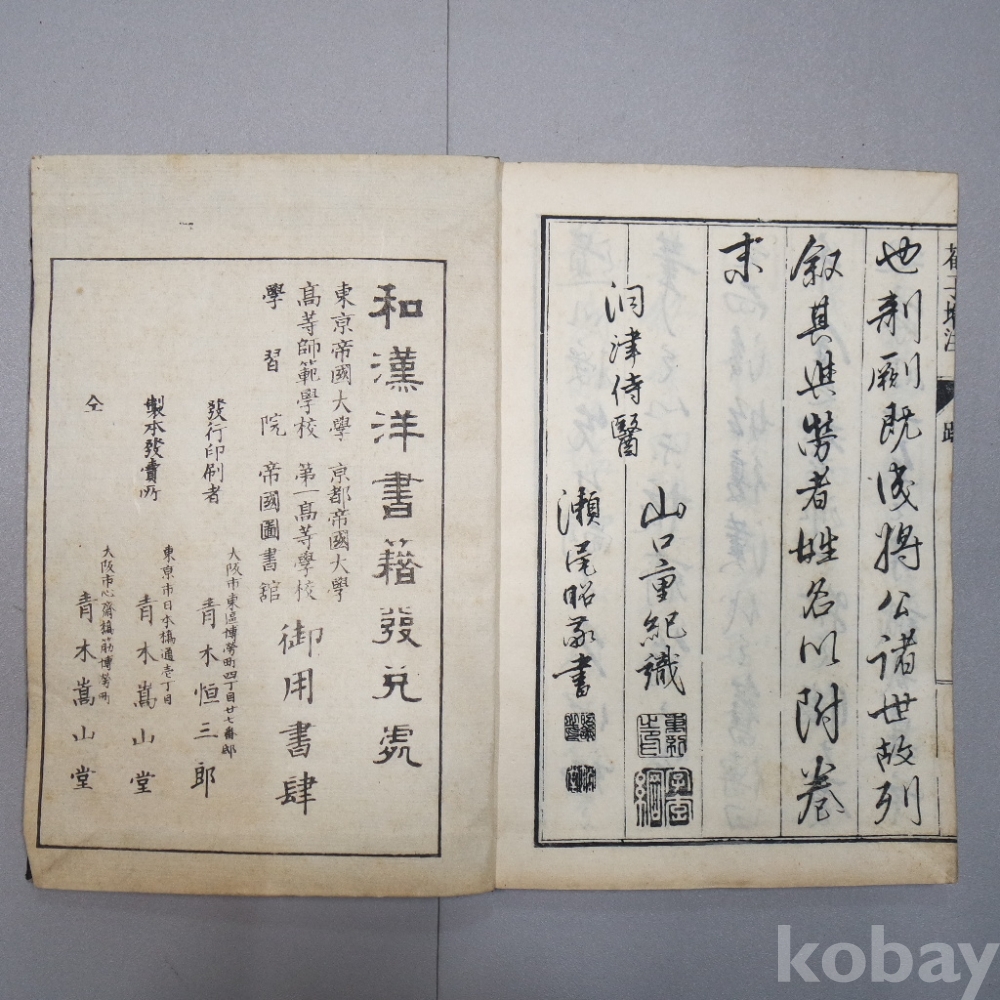 也剞劂既成將公諸世故列
叙其與勞者姓名以附卷
末
洞津侍醫
山口重紀識
瀬尾昭 書
跋
和漢洋書籍發兌處
東京帝國大學 京都帝國大學
高等師範學校 第一高等學校
學習院 帝國圖書舘
御用書肆
發行印刷者
大阪市東區博勞町四丁目廿七番邸
青木恒三郎
製本發賣所
東京市日本橋通壱丁目
青木嵩山堂
仝
大阪市心齋橋筋博勞町
青木嵩山堂
kobay